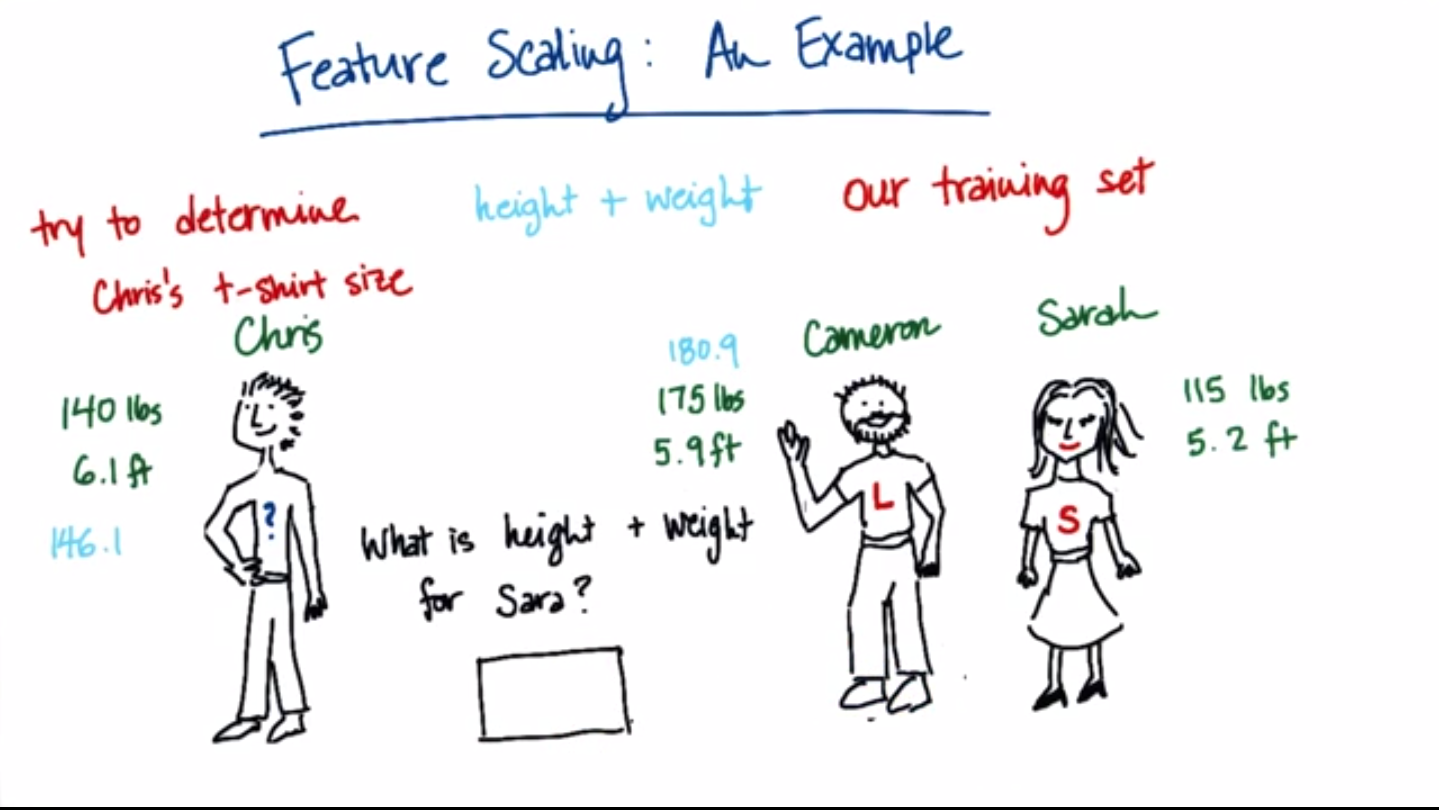 Feature Scaling: An Example
try to determine
Chris's t-shirt size
height + weight
our training set
Chris
140 lbs
6.1 ft
146.1
?
What is height + weight
for Sara?
180.9
175 lbs
5.9 ft
Cameron
L
Sarah
S
115 lbs
5.2 ft